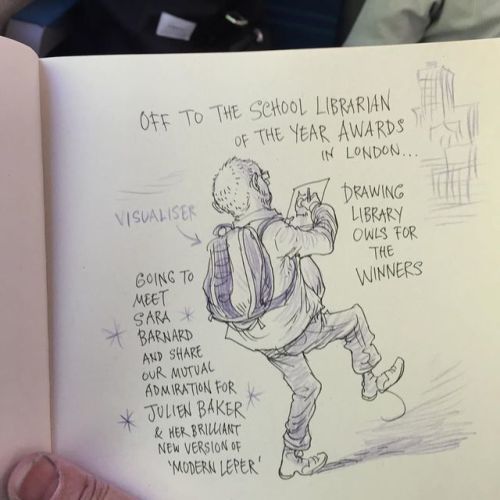 OFF TO THE SCHOOL LIBRARIAN
OF THE YEAR AWARDS
IN LONDON...
DRAWING
LIBRARY
OWLS FOR
THE
WINNERS
VISUALISER
GOING TO
MEET
SARA
BARNARD
AND SHARE
OUR MUTUAL
ADMIRATION FOR
JULIEN BAKER
& HER BRILLIANT
NEW VERSION OF
'MODERN LEPER'